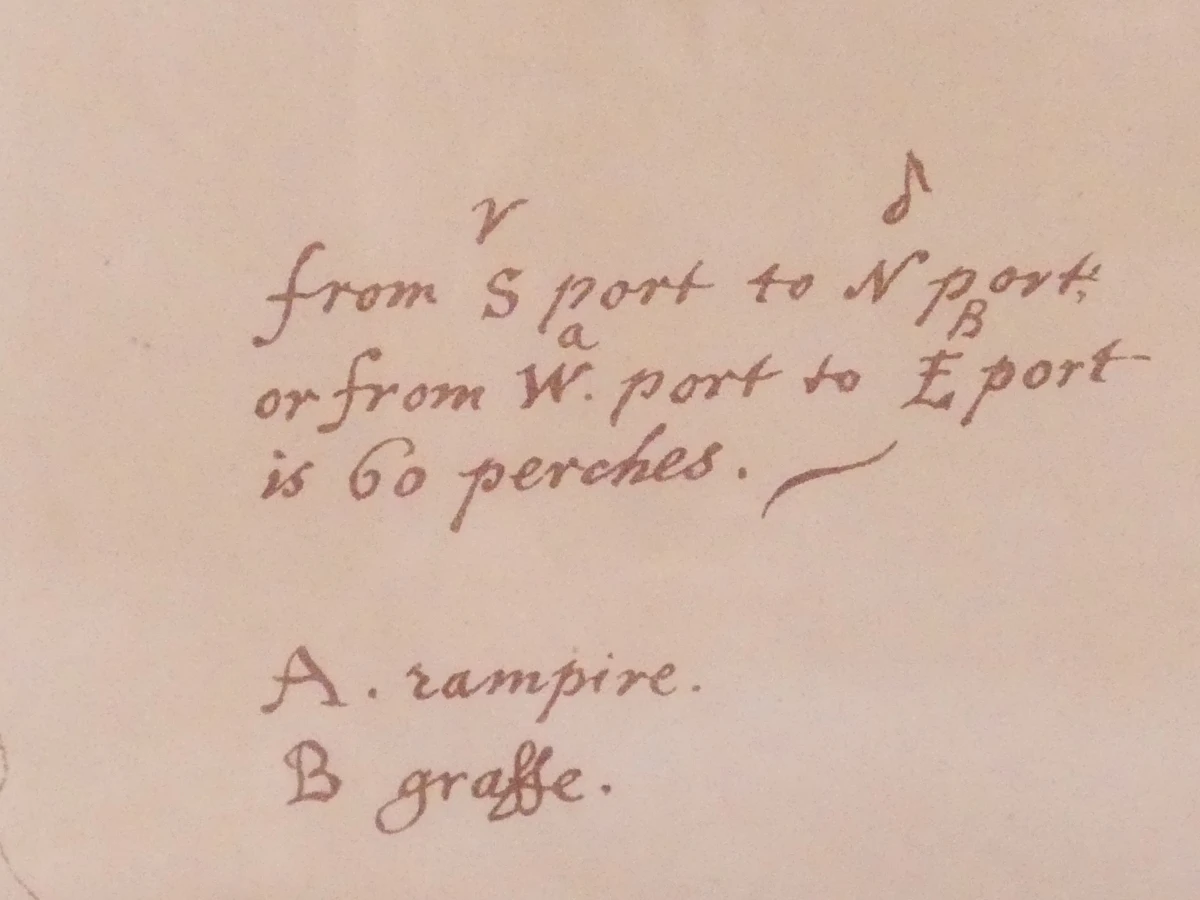 γ δ
from S port to N port;
a B
or from W. port to E port
is 60 perches.
A. rampire.
B graffe.